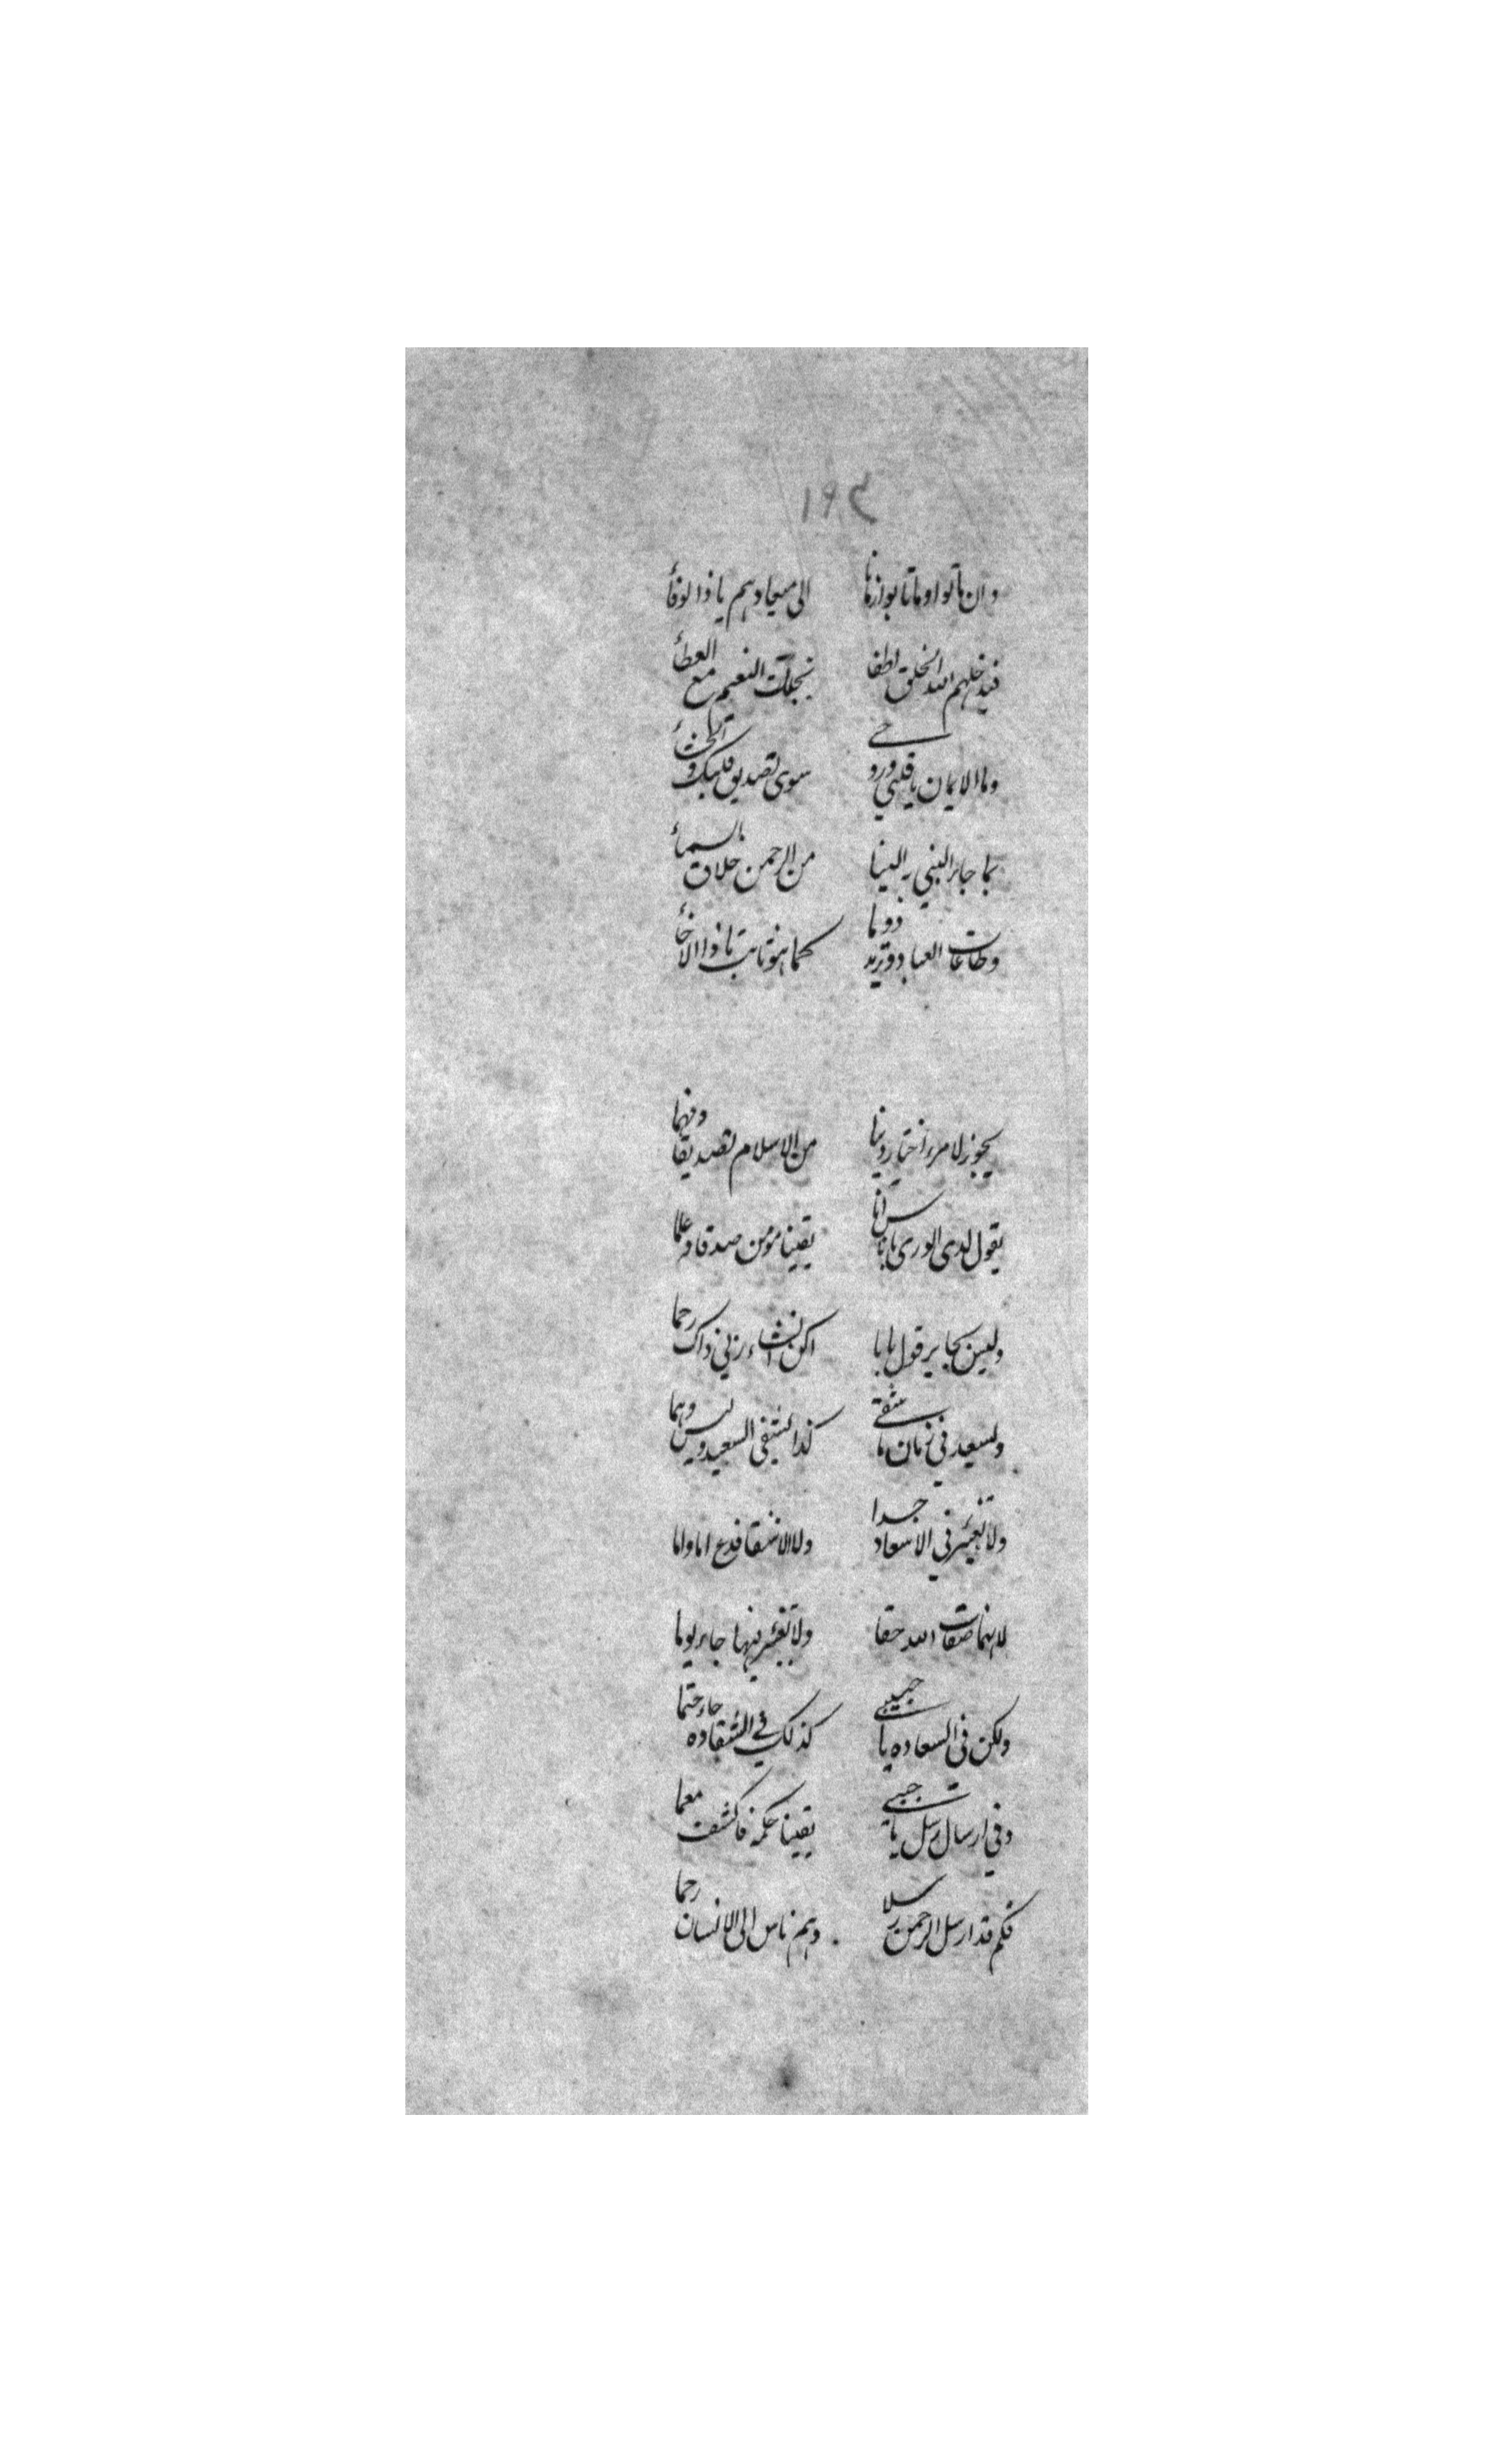 ١٩٤
وان ماتوا وما تابوا زمانا الى ميعادهم يا ذا الوفاء
فيدخلهم الله الخلق لطفا بجنات النعيم مع العطاء
وما الايمان يا قلبي وروحي سوى تصديق قلبك
بما جاء النبي به الينا من الرحمن خلاق السماء
وطاعات العباد تزيد دوما كما هو ثابت يا ذا الاخاء
يجوز لامرء اختار دينا من الاسلام تصديقا وفهما
يقول لدى الورى اناسا يقينا مؤمن صدقا وعلما
وليس بجاير قول اكن انشاء ربي ذاك رحما
ولسعيد في زمان ما شقي كذا يشقى السعيد وليس وهما
ولا تغير في الاسعاد جدا ولا الاشقا فدع اما واما
لانهما صفات الله حقا ولا تغير فيها جاء يوما
ولكن في السعاده يا حبيبي كذلك في الشقاده جاء حتما
وفي ارسال رسل يا حبيبي يقينا حكمة فاكشف معما
فكم قد ارسل الرحمن رسلا وهم ناس الى الانسان رحما